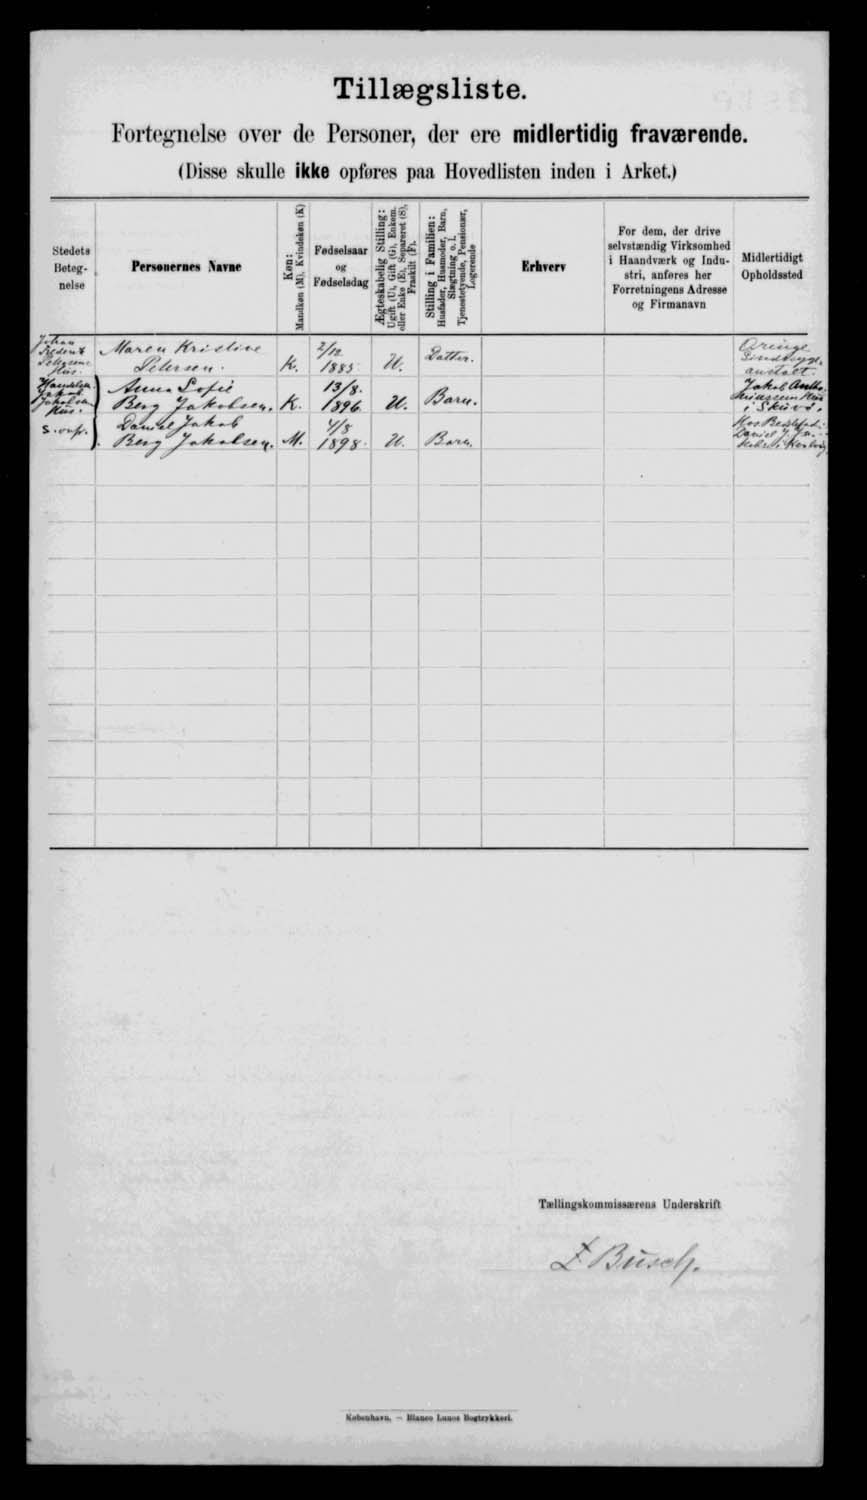 Tillægsliste.
Fortegnelse over de Personer, der ere midlertidig fraværende.
(Disse skulle ikke opføres paa Hovedlisten inden i Arket.)
Stedets
Beteg-
nelse
Personernes Navne
Køn:
Mandkøn (M), Kvindekøn (K)
Fødselsaar
og
Fødselsdag
Ægteskabelig Stilling:
Ugift (U), Gift (G), Enkem.
eller Enke (E), Separeret (S),
Fraskilt (F).
Stilling i Familien:
Husfader, Husmoder, Barn,
Slægtning o. l.
Tjenestetyende, Pensionær,
Logerende
Erhverv
For dem, der drive
selvstændig Virksomhed
i Haandværk og Indu-
stri, anføres her
Forretningens Adresse
og Firmanavn
Midlertidigt
Opholdssted
Johan
Petersens
Hus.
Maren Kristine
Petersen.
K.
2/12
1885
U.
Datter.
Oringe
Sindssyge-
anstalt.
Jakob
Jakobsens
Hus.
Anna Sofie
Berg Jakobsen.
K.
13/8.
1896.
U.
Barn.
Jakob
i Skuvø.
Daniel Jakob
Berg Jakobsen.
M.
4/8
1898.
U.
Barn.
Hos
Daniel J.
Tællingskommissærens Underskrift
Z Busch.
København. — Bianco Lunos Bogtrykkeri.